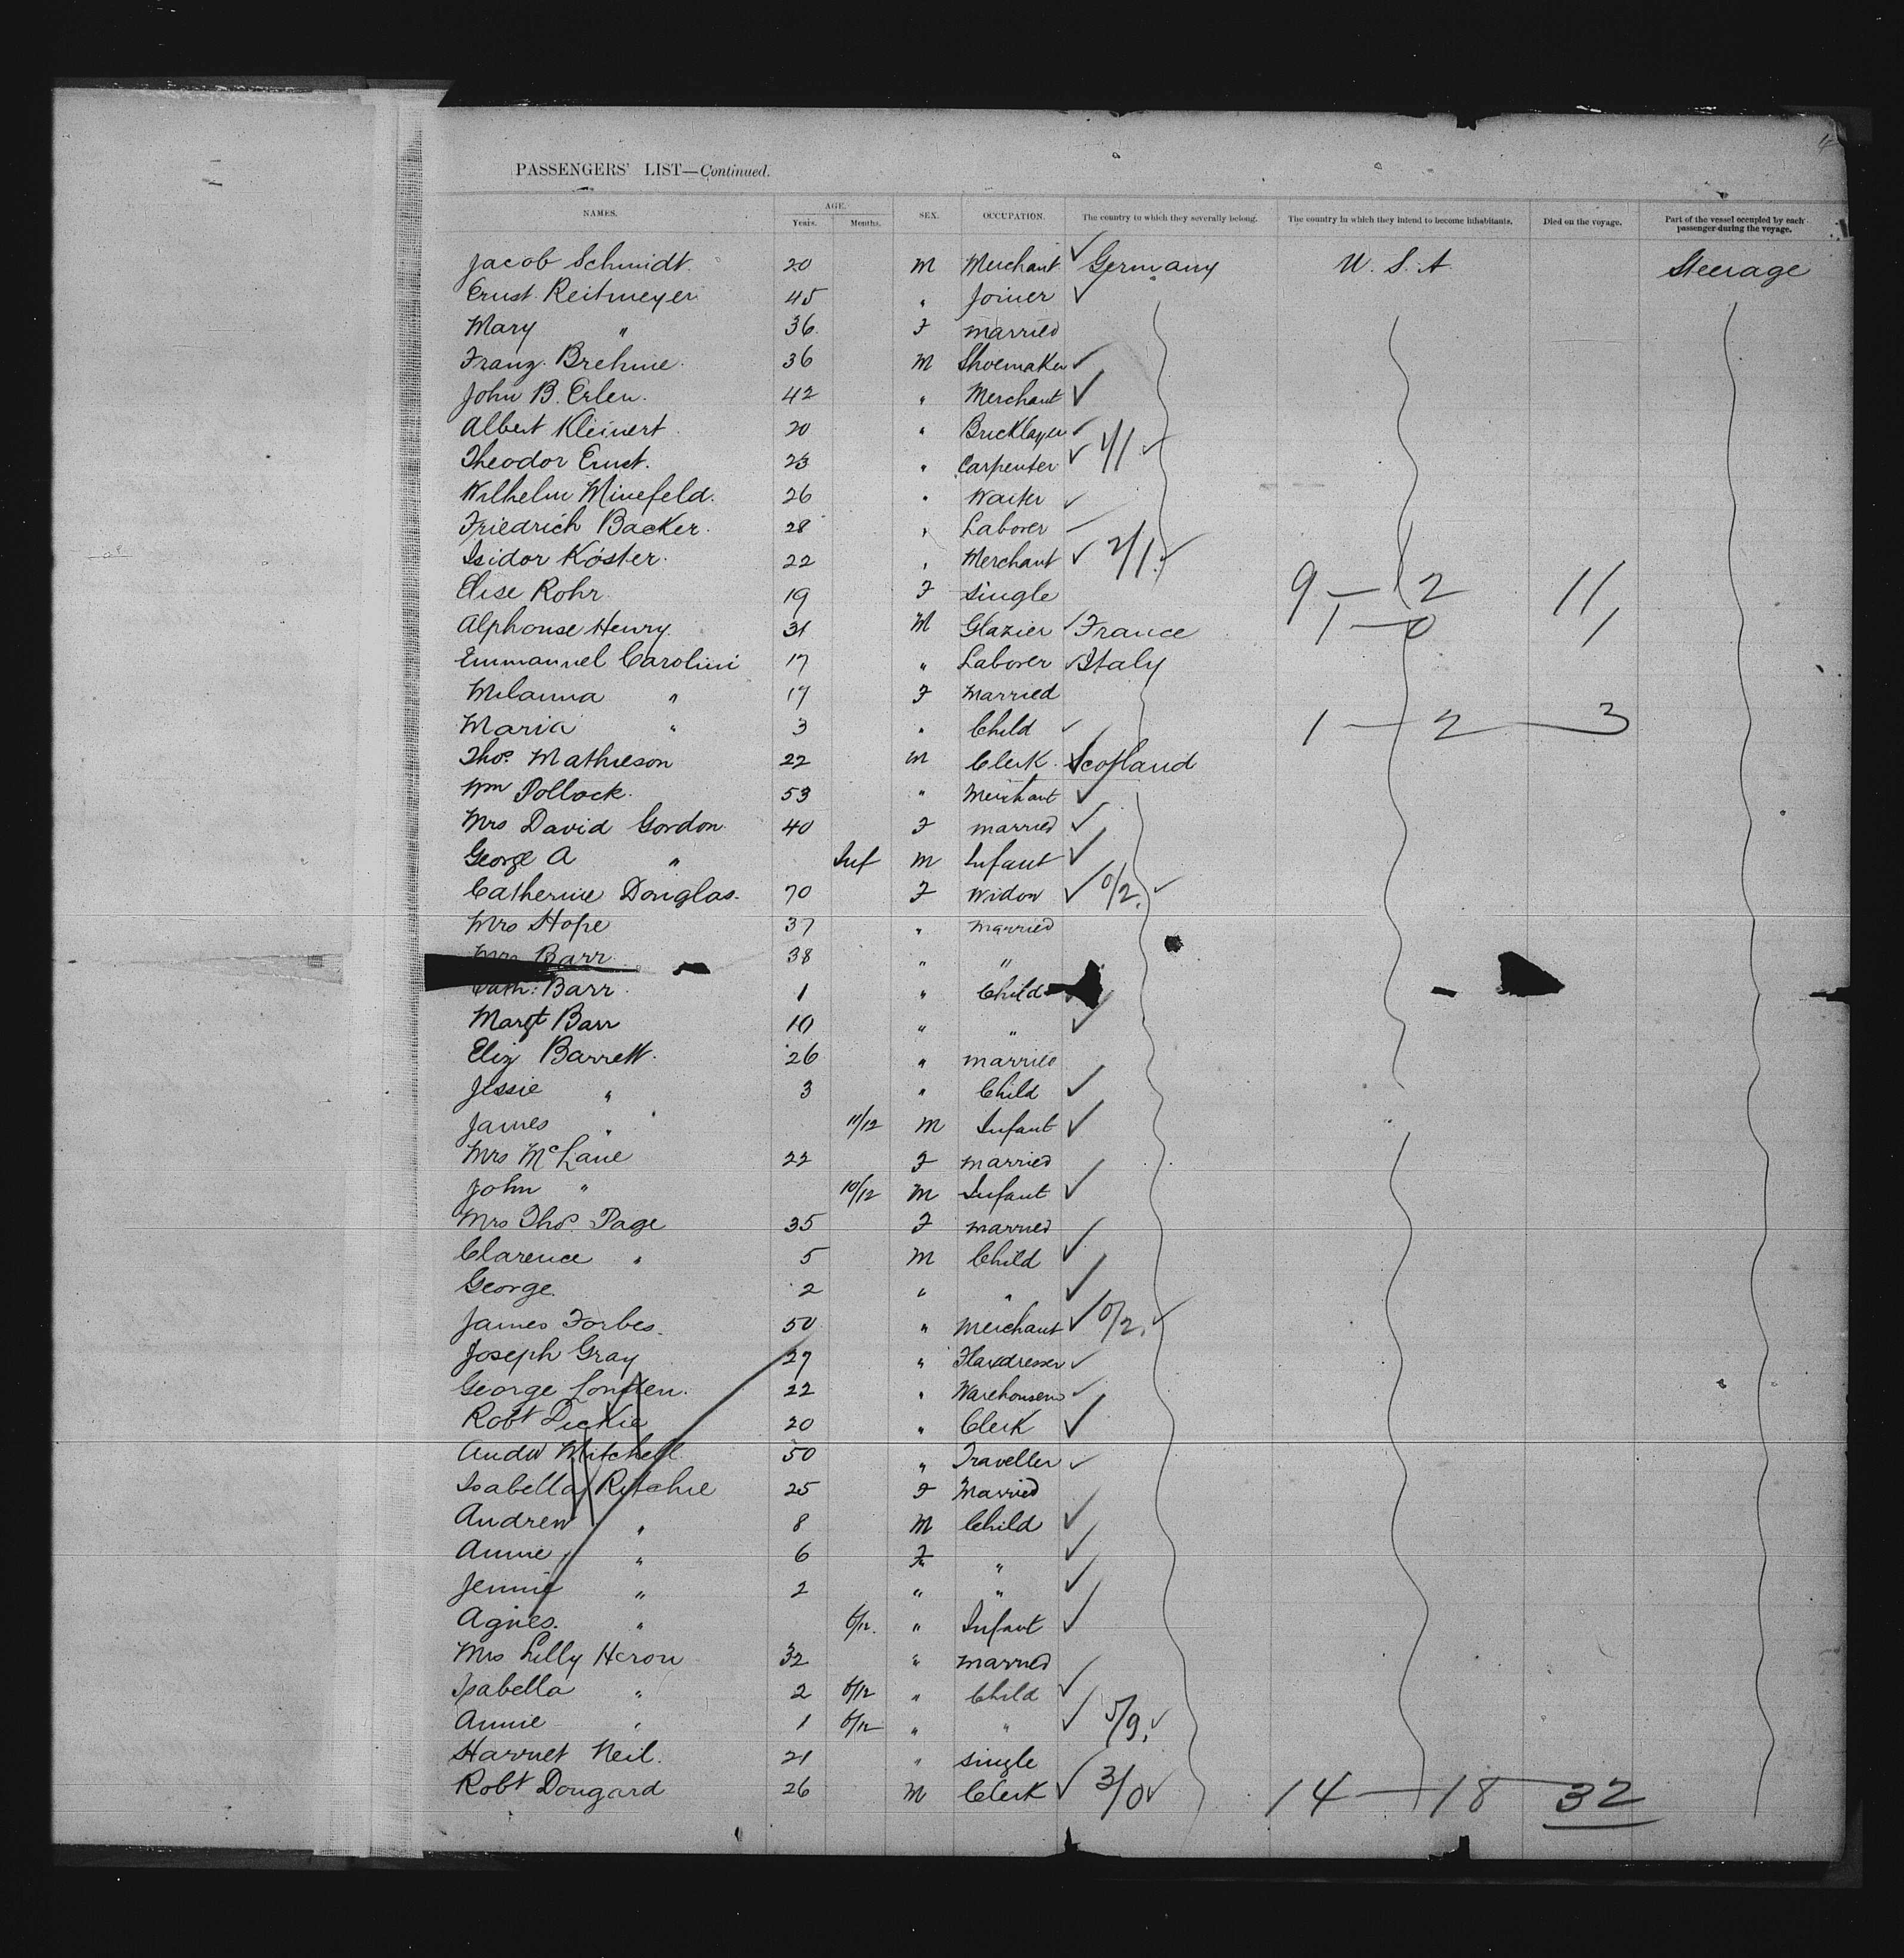 PASSENGERS' LIST—Continued.
NAMES. AGE. Years. Months. SEX. OCCUPATION. The country to which they severally belong. The country in which they intend to become inhabitants. Died on the voyage. Part of the vessel occupied by each passenger during the voyage.
Jacob Schmidt. 20 M Merchant ✓ Germany U.S.A. Steerage
Ernst Reitmeyer 45 " Joiner ✓
Mary " 36 F married
Franz Brehme. 36 M Shoemaker ✓
John B. Erlen. 42 " Merchant ✓
Albert Kleinert 20 " Bricklayer ✓
Theodor Ernst. 23 " Carpenter ✓ 1/1 ✓
Wilhelm Minefeld. 26 " Waiter ✓
Friedrich Backer. 28 " Laborer
Isidor Köster. 22 " Merchant ✓ 2/1. ✓
Elise Rohr 19 F single 9 — 2 11
Alphonse Henry 31 M Glazier ✓ France 1 — 0 1
Emmanuel Carolini 17 " Laborer ✓ Italy
Milanna " 19 F Married
Maria " 3 " Child ✓ 1 — 2 — 3
Thos. Mathieson 22 M Clerk ✓ Scotland
Wm Pollock. 53 " Merchant ✓
Mrs David Gordon 40 F married ✓
George A " Inf M Infant ✓
Catherine Douglas. 70 F Widow ✓ 0/2. ✓
Mrs Hope 37 " married
Mrs Barr 38 " "
Cath: Barr 1 " Child ✓
Margt Barr 10 " " ✓
Eliz Barrett. 26 " married
Jessie " 3 " Child ✓
James " 11/12 M Infant ✓
Mrs McLane 22 F married
John " 10/12 M Infant ✓
Mrs Thos. Page 35 F married
Clarence " 5 M Child ✓
George. 2 " " ✓
James Forbes. 50 " Merchant ✓ 0/2. ✓
Joseph Gray 27 " Flaxdresser ✓
George 22 " ✓
Robt Dickie 20 " Clerk ✓
Andw Mitchell 50 " Traveller ✓
Isabella Ritchie 25 F Married
Andrew " 8 M Child ✓
Annie " 6 F " ✓
Jennie " 2 " " ✓
Agnes. " 6/12. " Infant ✓
Mrs Lilly Heron 32 " married
Isabella " 2 6/12 " Child ✓
Annie " 1 6/12 " " ✓ 5/9. ✓
Harriet Neil. 21 " single
Robt Dougard 26 M Clerk ✓ 3/0 ✓ 14 — 18 — 32